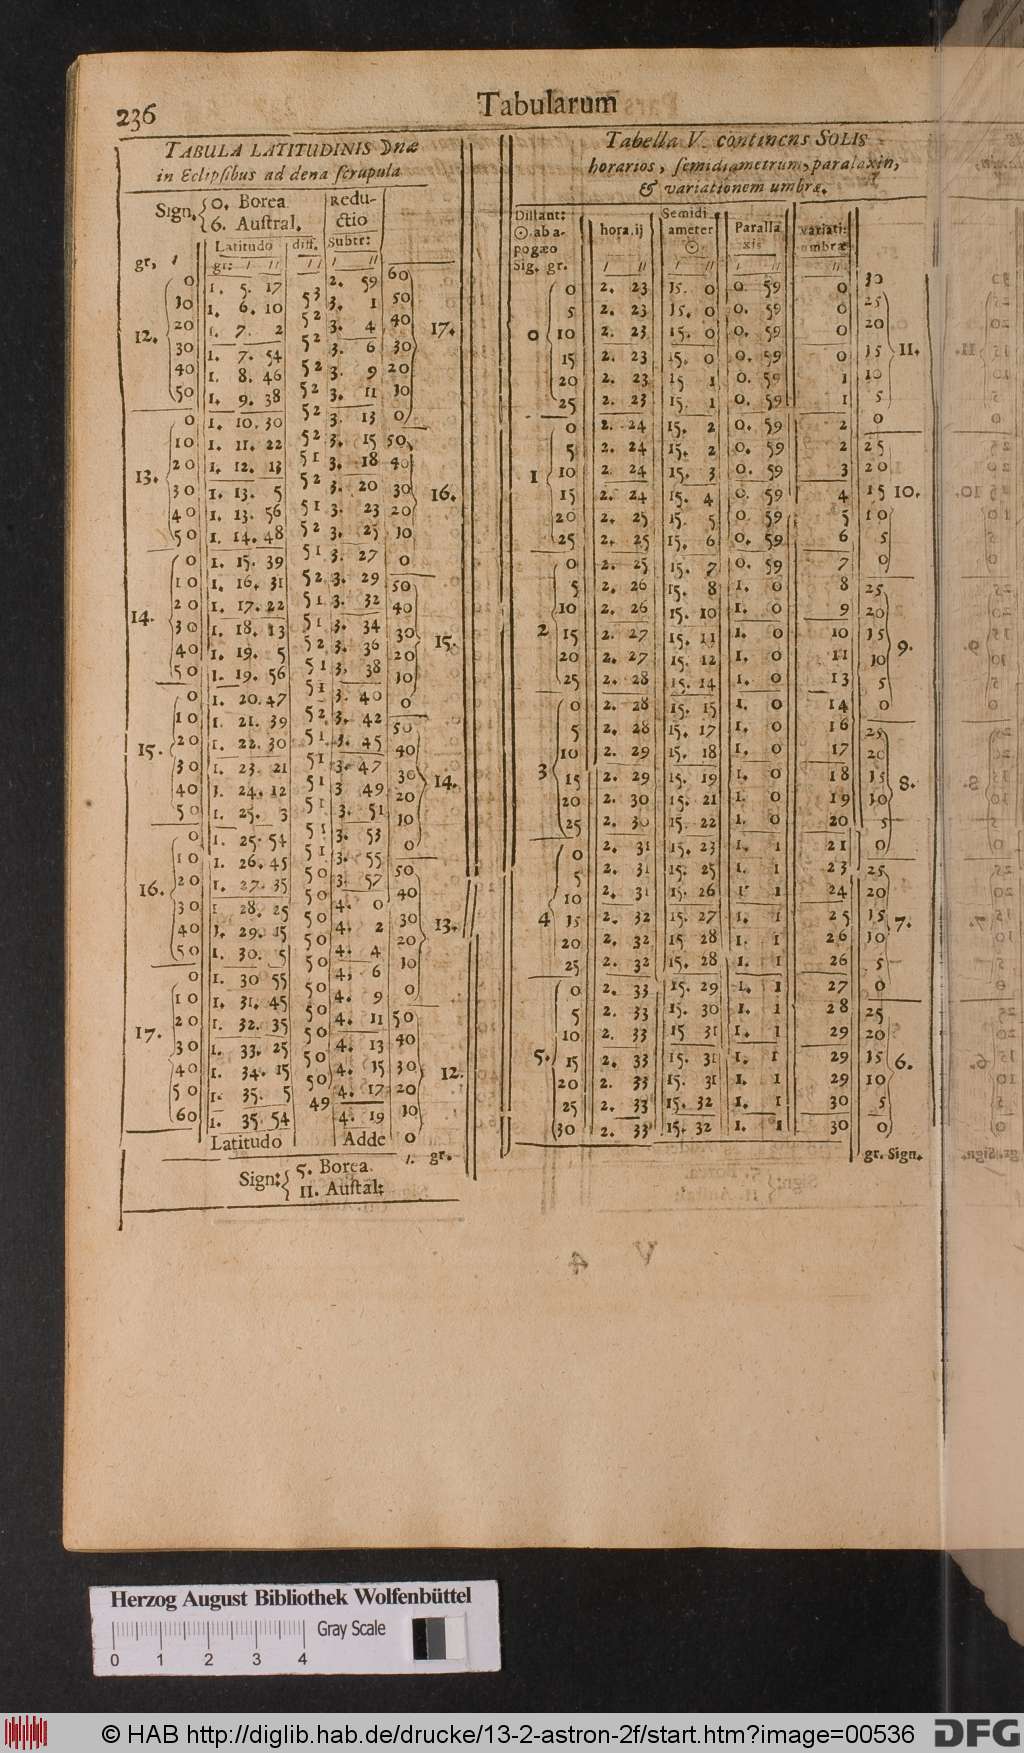 236
Tabularum
TABULA LATITUDINIS Dnæ
in Eclipsibus ad dena scrupula
Sign. 0. Borea
6. Austral.
Redu-
ctio
Subtr:
Latitudo diff.
gr, ı gr: ı ıı ıı ı ıı
12. 0 1. 5. 17 2. 59 60
53
10 1. 6. 10 3. 1 50
52
20 1. 7. 2 3. 4 40 17.
52
30 1. 7. 54 3. 6 30
52
40 1. 8. 46 3. 9 20
52
50 1. 9. 38 3. 11 10
52
13. 0 1. 10. 30 3. 13 0
52
10 1. 11. 22 3. 15 50
51
20 1. 12. 13 3. 18 40
52
30 1. 13. 5 3. 20 30 16.
51
40 1. 13. 56 3. 23 20
52
50 1. 14. 48 3. 25 10
51
14. 0 1. 15. 39 3. 27 0
52
10 1. 16. 31 3. 29 50
51
20 1. 17. 22 3. 32 40
51
30 1. 18. 13 3. 34 30 15.
52
40 1. 19. 5 3. 36 20
51
50 1. 19. 56 3. 38 10
51
15. 0 1. 20. 47 3. 40 0
52
10 1. 21. 39 3. 42 50
51
20 1. 22. 30 3. 45 40
51
30 1. 23. 21 3. 47 30 14.
51
40 1. 24. 12 3 49 20
51
50 1. 25. 3 3. 51 10
51
16. 0 1. 25. 54 3. 53 0
51
10 1. 26. 45 3. 55 50
50
20 1. 27. 35 3. 57 40
50
30 1 28. 25 4. 0 30 13.
50
40 1. 29. 15 4. 2 20
50
50 1. 30. 5 4. 4 10
50
17. 0 1. 30 55 4. 6 0
50
10 1. 31. 45 4. 9
50
20 1. 32. 35 4. 11 50
50
30 1. 33. 25 4. 13 40
50
40 1. 34. 15 4. 15 30 12.
50
50 1. 35. 5 4. 17 20
49
60 1. 35 54 4. 19 10
Latitudo Adde 0
ı. gr.
Sign: 5. Borea
11. Austal:
Tabella V. continens SOLIS
horarios, semidiametrum, paralaxin,
& variationem umbræ.
Distant:
☉ ab a-
pogæo
Sig. gr.
hora. ij
Semidi
ameter
☉.
Paralla
xis
variati:
umbræ
ı ıı ı ıı ı ıı ıı
0 0 2. 23 15. 0 0. 59 0 30
5 2. 23 15. 0 0. 59 0 25
10 2. 23 15. 0 0. 59 0 20
15 2. 23 15. 0 0. 59 0 15 11.
20 2. 23 15 1 0. 59 1 10
25 2. 23 15. 1 0. 59 1 5
1 0 2. 24 15. 2 0. 59 2 0
5 2. 24 15. 2 0. 59 2 25
10 2. 24 15. 3 0. 59 3 20
15 2. 24 15. 4 0. 59 4 15 10.
20 2. 25 15. 5 0. 59 5 10
25 2. 25 15. 6 0. 59 6 5
2 0 2. 25 15. 7 0. 59 7 0
5 2. 26 15. 8 1. 0 8 25
10 2. 26 15. 10 1. 0 9 20
15 2. 27 15. 11 1. 0 10 15 9.
20 2. 27 15. 12 1. 0 11 10
25 2. 28 15. 14 1. 0 13 5
3 0 2. 28 15. 15 1. 0 14 0
5 2. 28 15. 17 1. 0 16 25
10 2. 29 15. 18 1. 0 17 20
15 2. 29 15. 19 1. 0 18 15 8.
20 2. 30 15. 21 1. 0 19 10
25 2. 30 15. 22 1. 0 20 5
4 0 2. 31 15. 23 1. 1 21 0
5 2. 31 15. 25 1. 1 23 25
10 2. 31 15. 26 1. 1 24 20
15 2. 32 15. 27 1. 1 25 15 7.
20 2. 32 15 28 1. 1 26 10
25 2. 32 15. 28 1. 1 26 5
5. 0 2. 33 15. 29 1. 1 27 0
5 2. 33 15. 30 1. 1 28 25
10 2. 33 15 31 1. 1 29 20
15 2. 33 15. 31 1. 1 29 15 6.
20 2. 33 15. 31 1. 1 29 10
25 2. 33 15. 32 1. 1 30 5
30 2. 33 15. 32 1. 1 30 0
gr. Sign.
Herzog August Bibliothek Wolfenbüttel
Gray Scale
0 1 2 3 4
© HAB http://diglib.hab.de/drucke/13-2-astron-2f/start.htm?image=00536
DFG